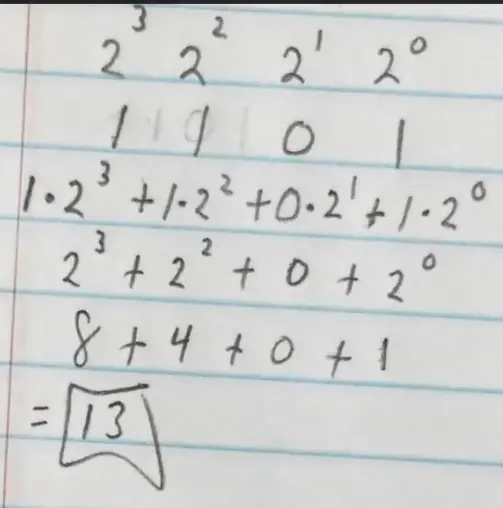 2³ 2² 2¹ 2⁰
1 1 0 1
1·2³ + 1·2² + 0·2¹ + 1·2⁰
2³ + 2² + 0 + 2⁰
8 + 4 + 0 + 1
= 13